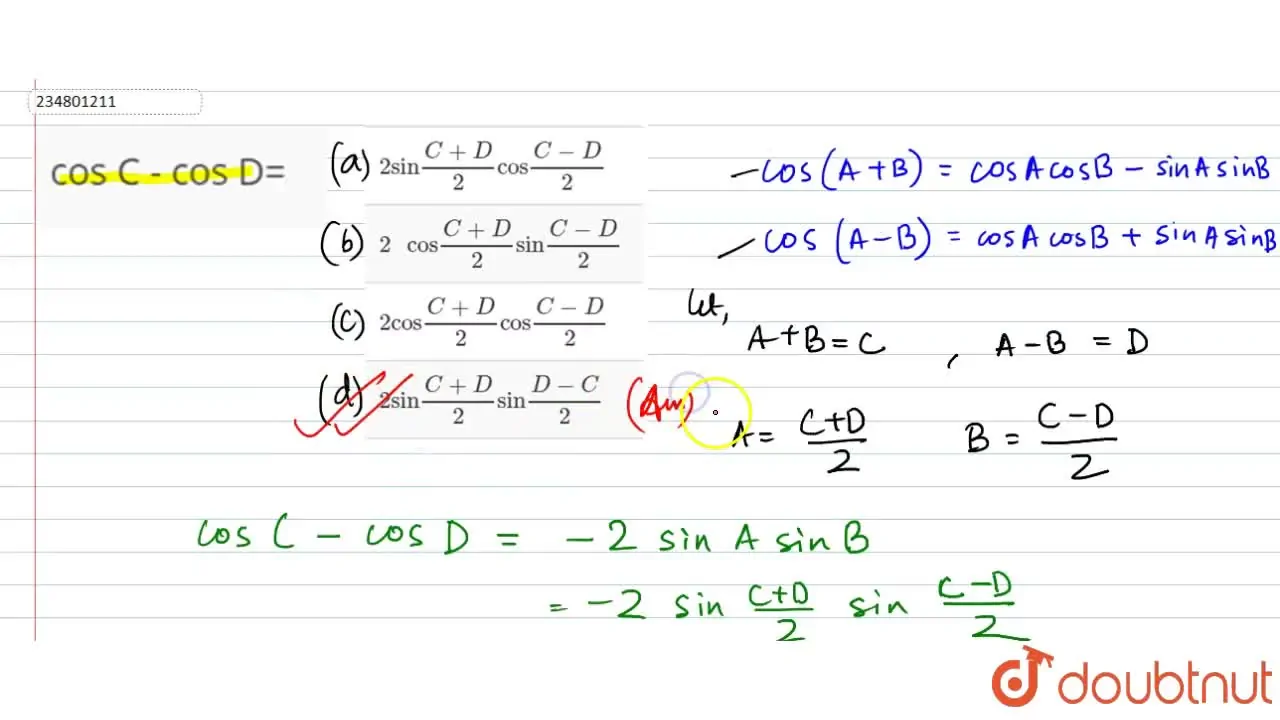 234801211
cos C - cos D=
(a) 2sin (C + D)/2 cos (C − D)/2
(b) 2 cos (C + D)/2 sin (C − D)/2
(c) 2cos (C + D)/2 cos (C − D)/2
(d) 2sin (C + D)/2 sin (D − C)/2 (Ans)
cos(A+B) = cosAcosB − sinAsinB
cos (A−B) = cosAcosB + sinAsinB
let,
A+B=C , A−B = D
A= (C+D)/2 B = (C−D)/2
cos C − cos D = −2 sin A sin B
= −2 sin (C+D)/2 sin (C−D)/2
doubtnut